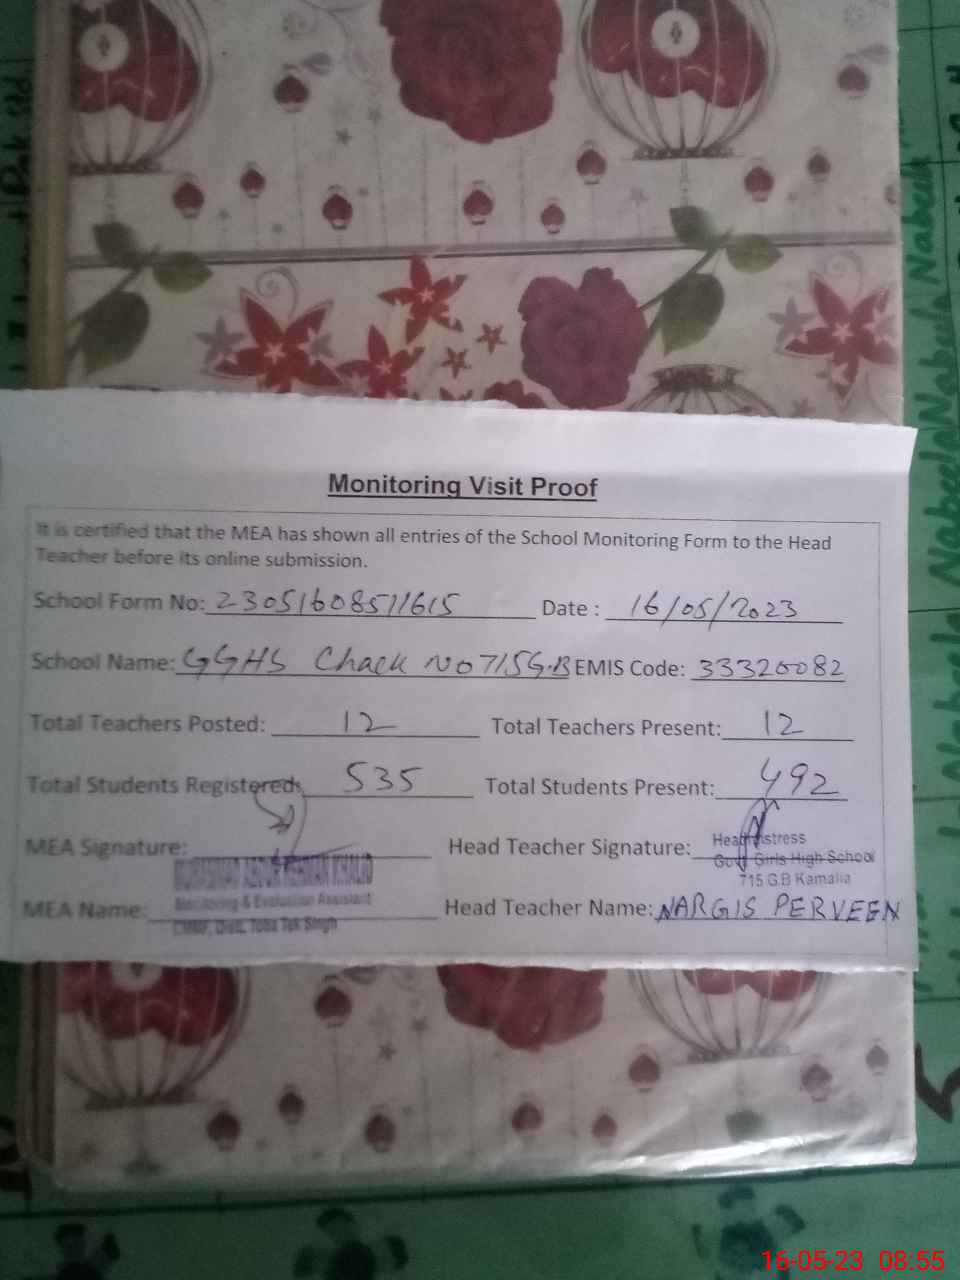 Monitoring Visit Proof
It is certified that the MEA has shown all entries of the School Monitoring Form to the Head
Teacher before its online submission.
School Form No: 23051608511615 Date : 16/05/2023
School Name: GGHS Chack No 715G.B EMIS Code: 33320082
Total Teachers Posted: 12 Total Teachers Present: 12
Total Students Registered: 535 Total Students Present: 492
MEA Signature: Head Teacher Signature:
Headmistress
Govt Girls High School
715 G.B Kamalia
Monitoring & Evaluation Assistant
MEA Name: Head Teacher Name: NARGIS PERVEEN
CMMF, Distt. Toba Tek Singh
Nabeela Nabeela Nabeela
16-05-23 08:55